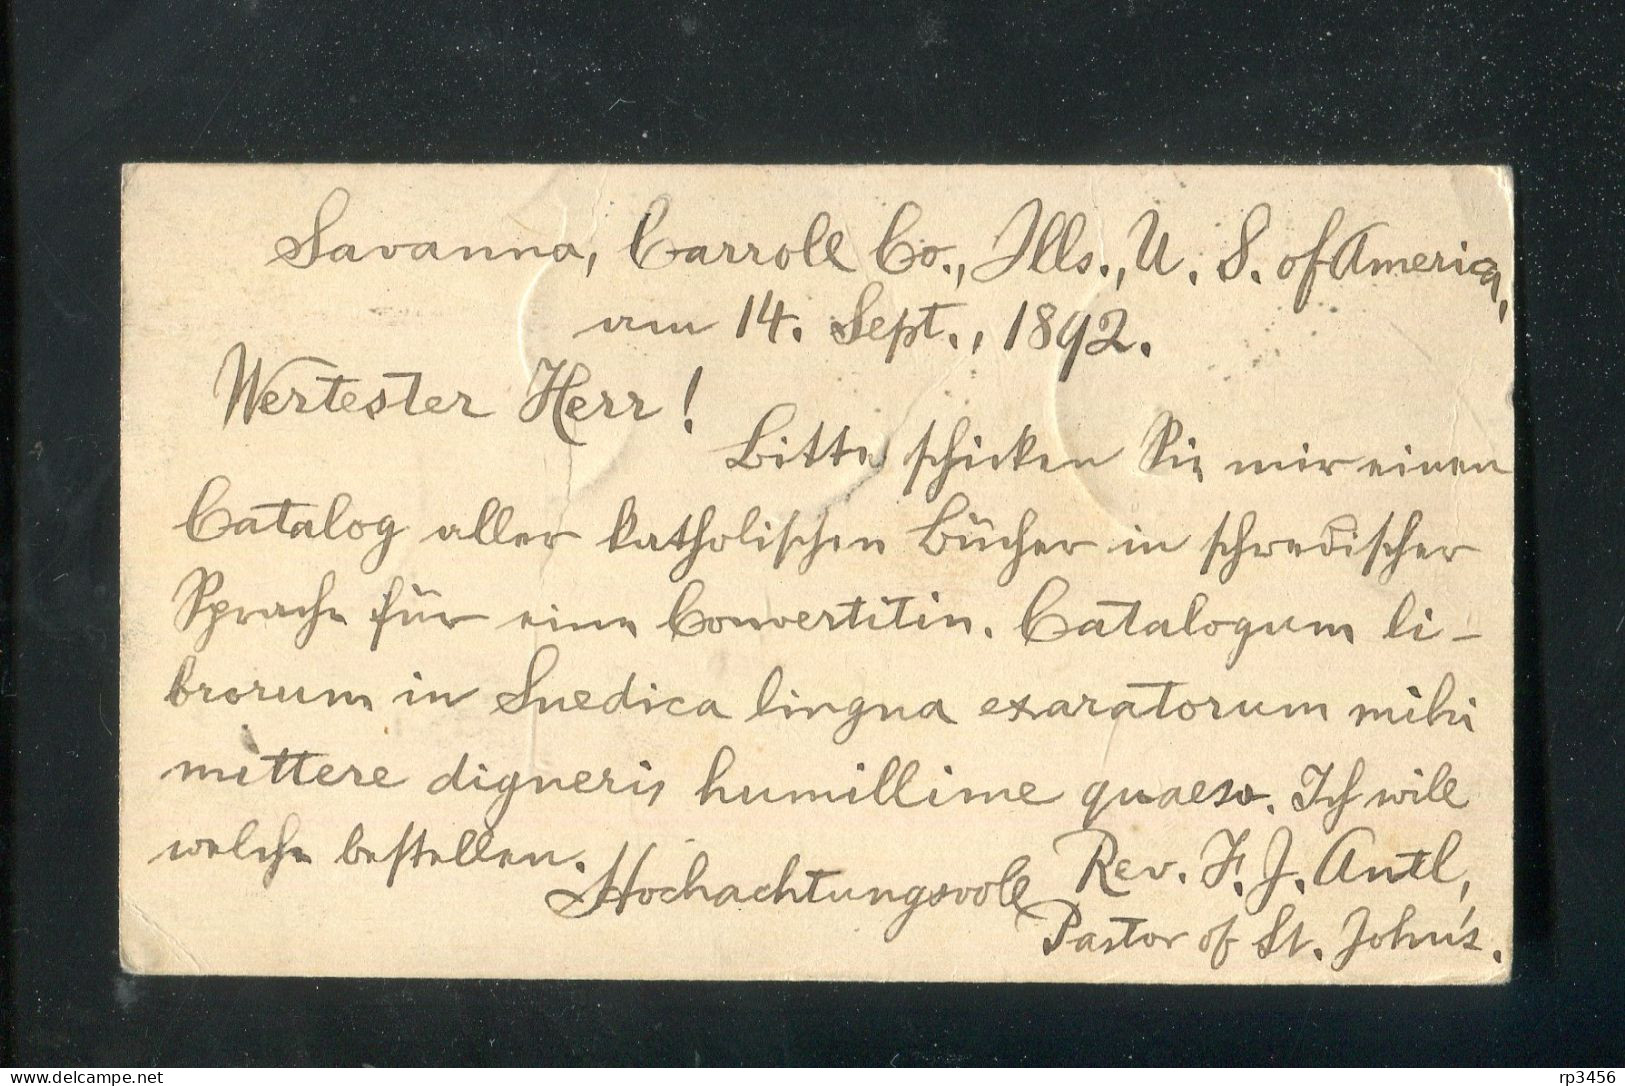 Savanna, Carroll Co., Ills., U. S. of America,
am 14. Sept., 1892.
Wertester Herr!
Bitte schicken Sie mir einen
Catalog aller katholischen Bücher in schwedischer
Sprache für eine Convertitin. Catalogum li-
brorum in Suedica lingua exaratorum mihi
mittere digneris humillime quaeso. Ich will
welche bestellen.
Hochachtungsvoll Rev. F. J. Antl,
Pastor of St. John's.
delcampe.net
rp3456